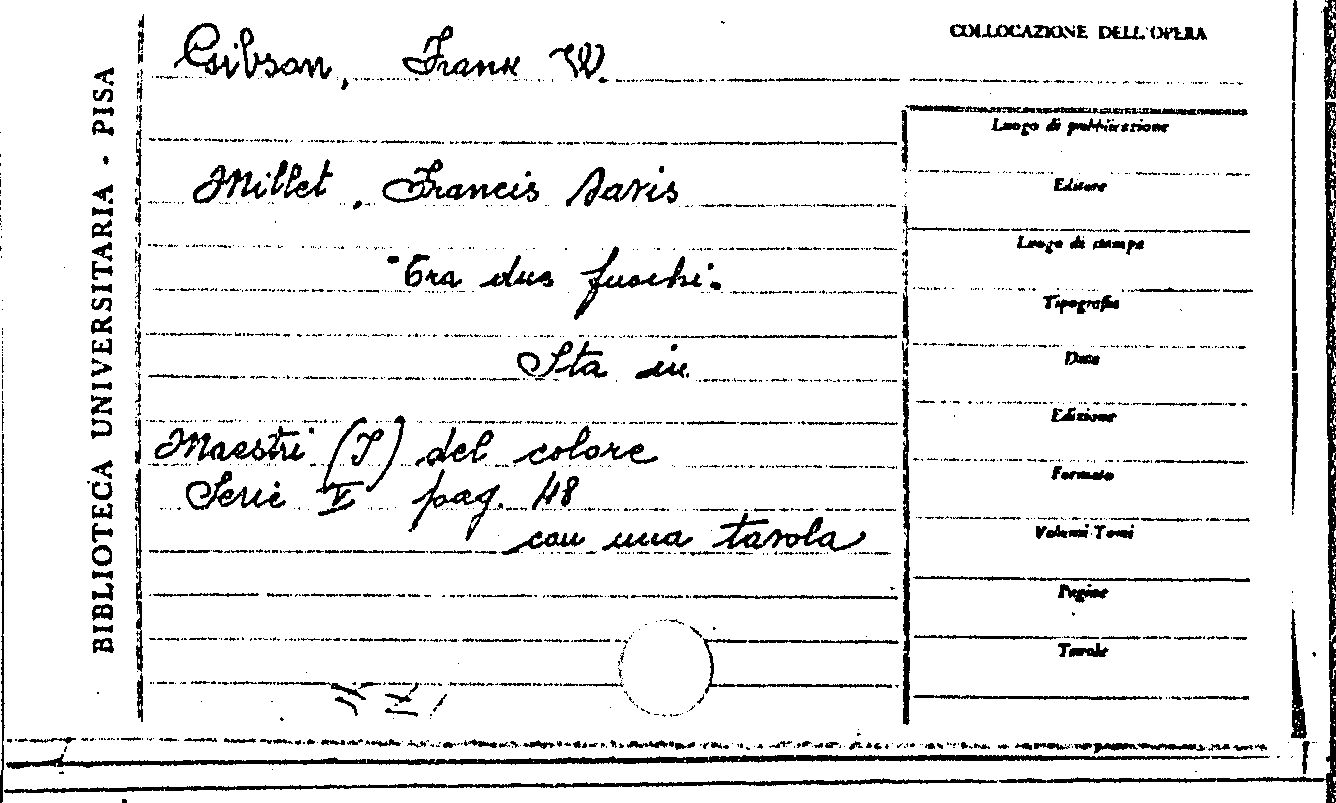 BIBLIOTECA UNIVERSITARIA - PISA
COLLOCAZIONE DELL'OPERA
Gibson, Frank W.
Millet, Francis Davis
"Tra due fuochi".
Sta in
Maestri (I) del colore
Serie V pag. 48
con una tavola
Luogo di pubblicazione
Editore
Luogo di stampa
Tipografia
Data
Edizione
Formato
Volumi-Tomi
Pagine
Tavole